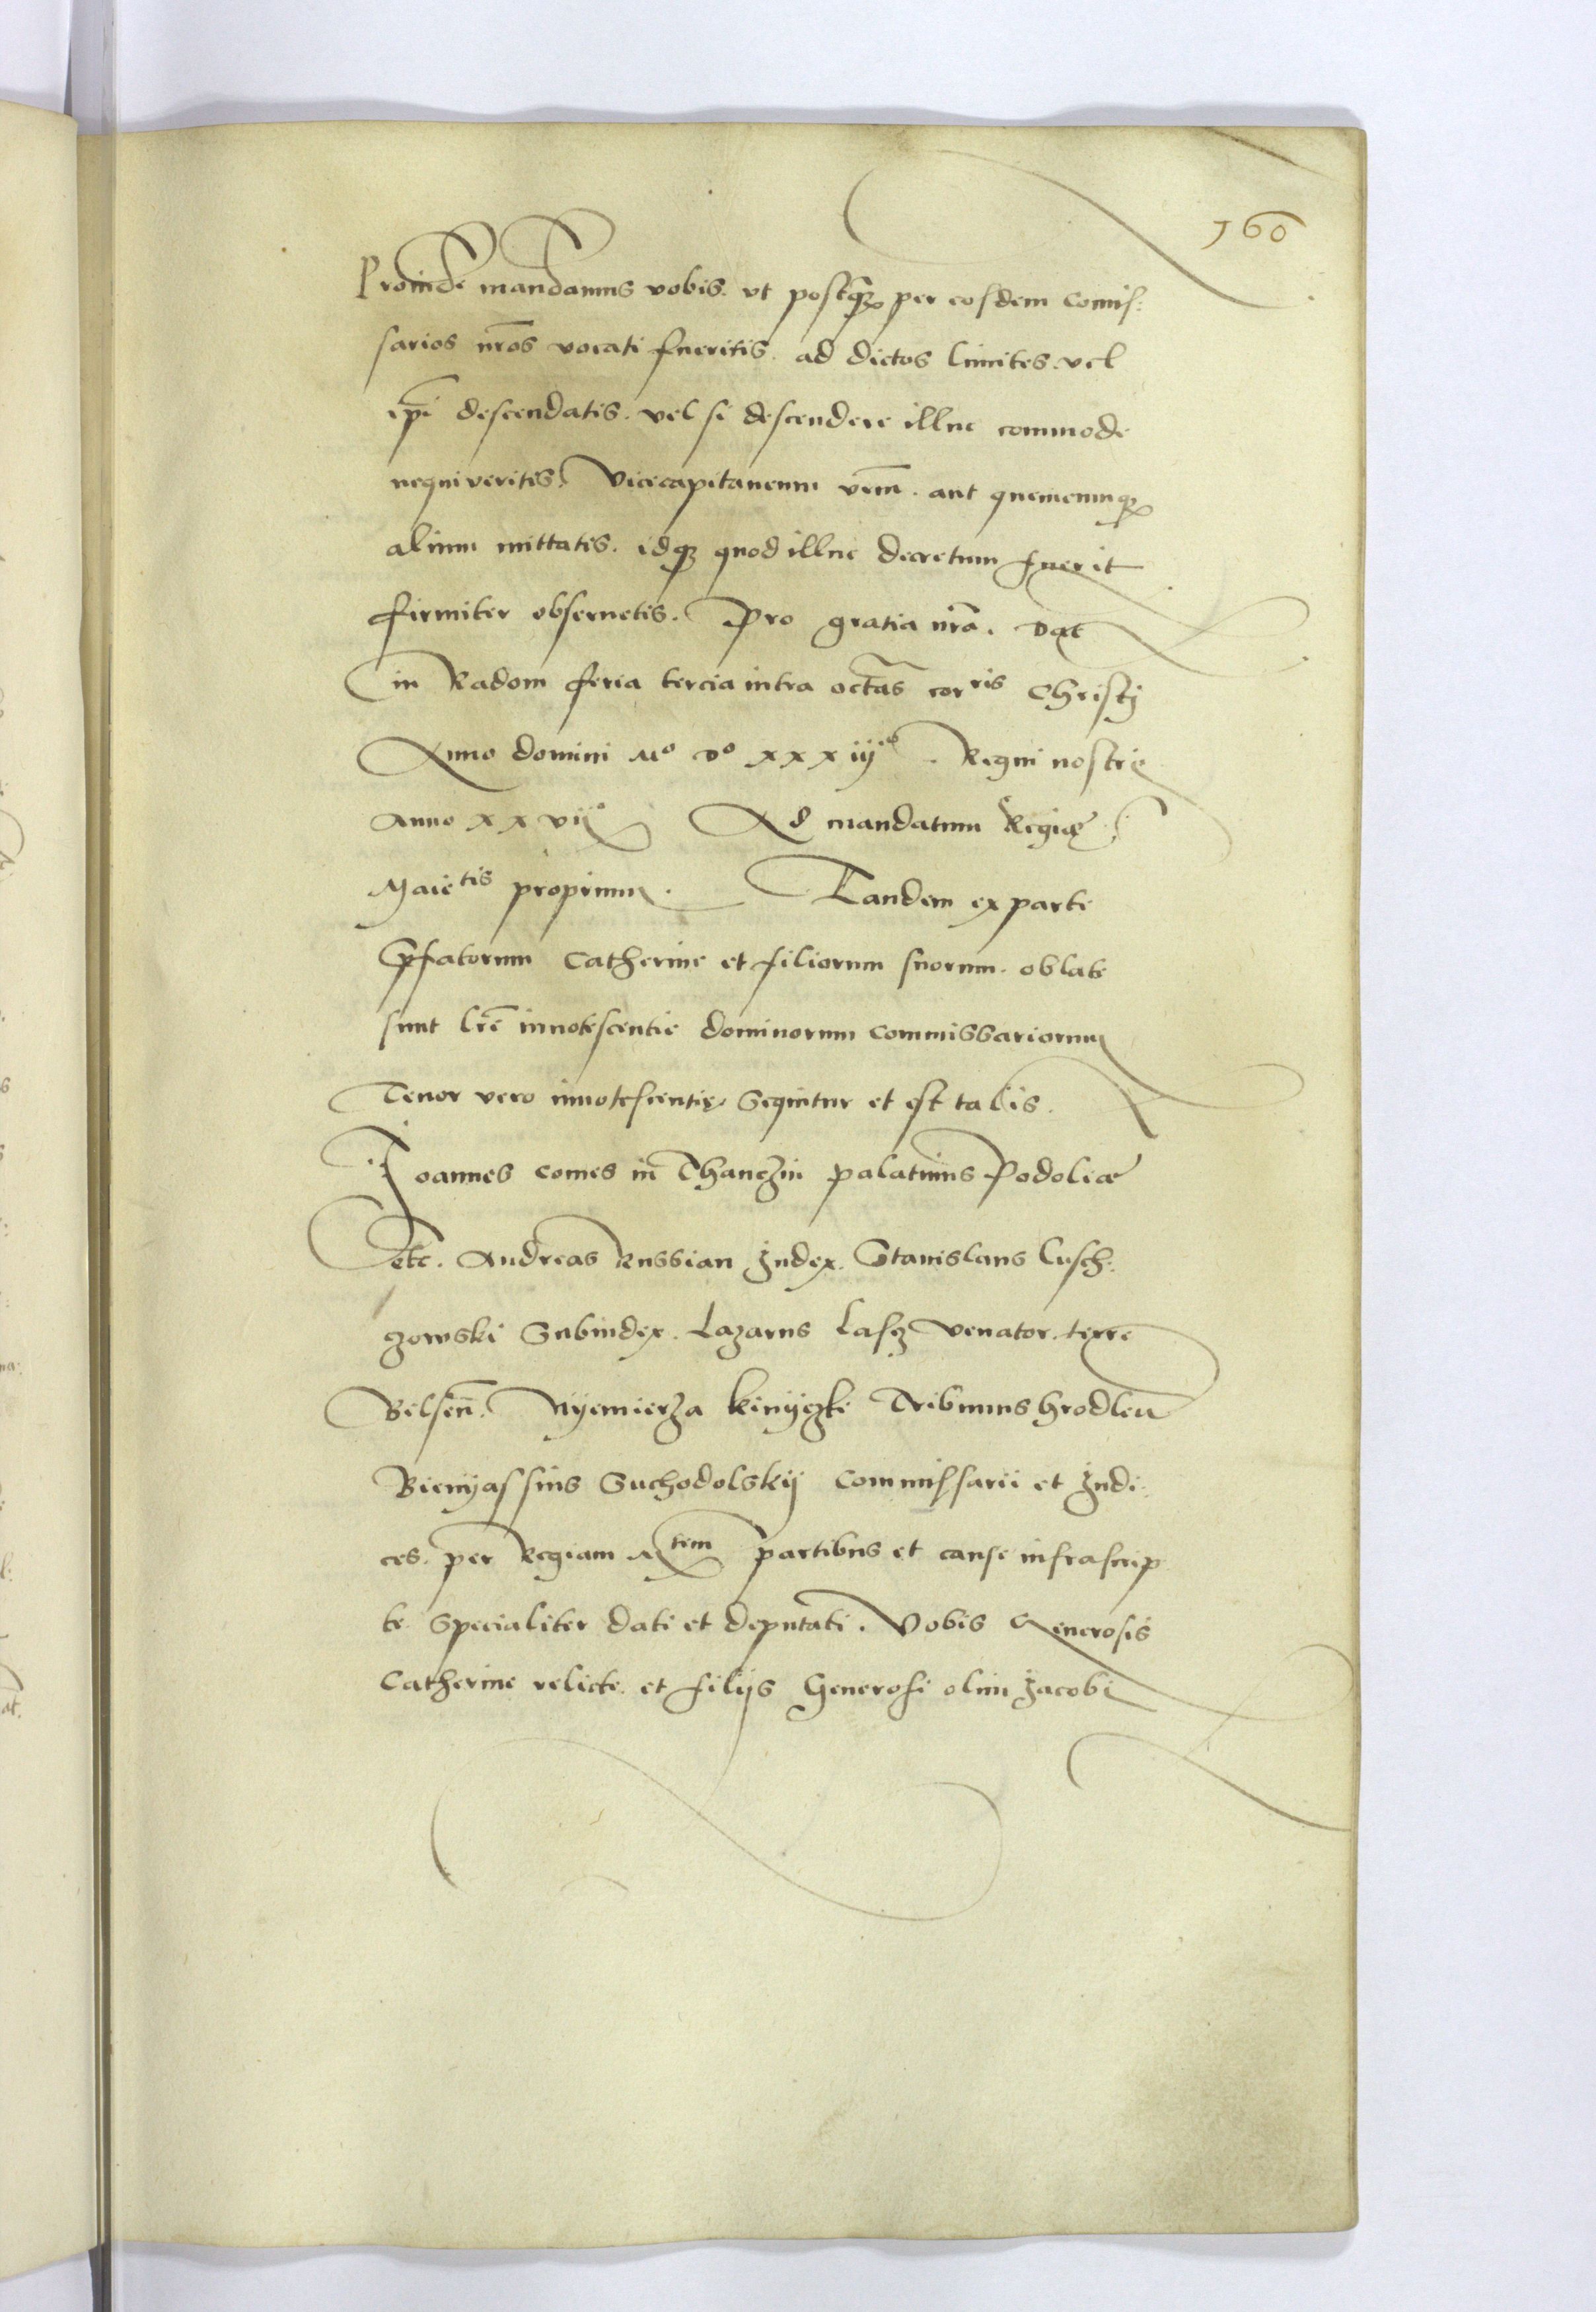 160
Proinde mandamus vobis. vt postqȝ per eosdem comis:
sarios nr̄os vocati fueritis. ad dictos limites. vel
ip̄i descendatis. vel si descendere illuc commode
nequiveritis. Vicecapitaneum vrm̄. aut quemcunqȝ
alium mittatis. idqȝ quod illuc decretum fuerit
firmiter obseruetis. Pro gratia nrā. Dat
in Radom feria tercia intra octa᷒s cor ris Christj
Anno domini Mo Do xxxiijo. Regni nostri
Anno xxvijo Ad mandatum Regię
Maiētis proprium. Tandem ex parte
p̄fatorum Catherine et filiorum suorum. oblate
sunt lrē innotescentie dominorum commissariorum
Tenor vero innotescentię sequitur et est talis.
Joannes comes in Thanczin palatinus Podolię
etc. Andreas Russian Judex. Stanislaus Lusch:
zowski Subiudex. Lazarus Lasz venator. terre
Belsen̄. Nyemierza Kinyczki Tribunus hrodlen̄
Bienyassius Suchodolskij commissarii et Judi:
ces. per Regiam Mtem partibus et cause infrascrip
te. specialiter dati et deputati. Vobis Generosis
Catherine relicte. et filijs Generosi olim Jacobi